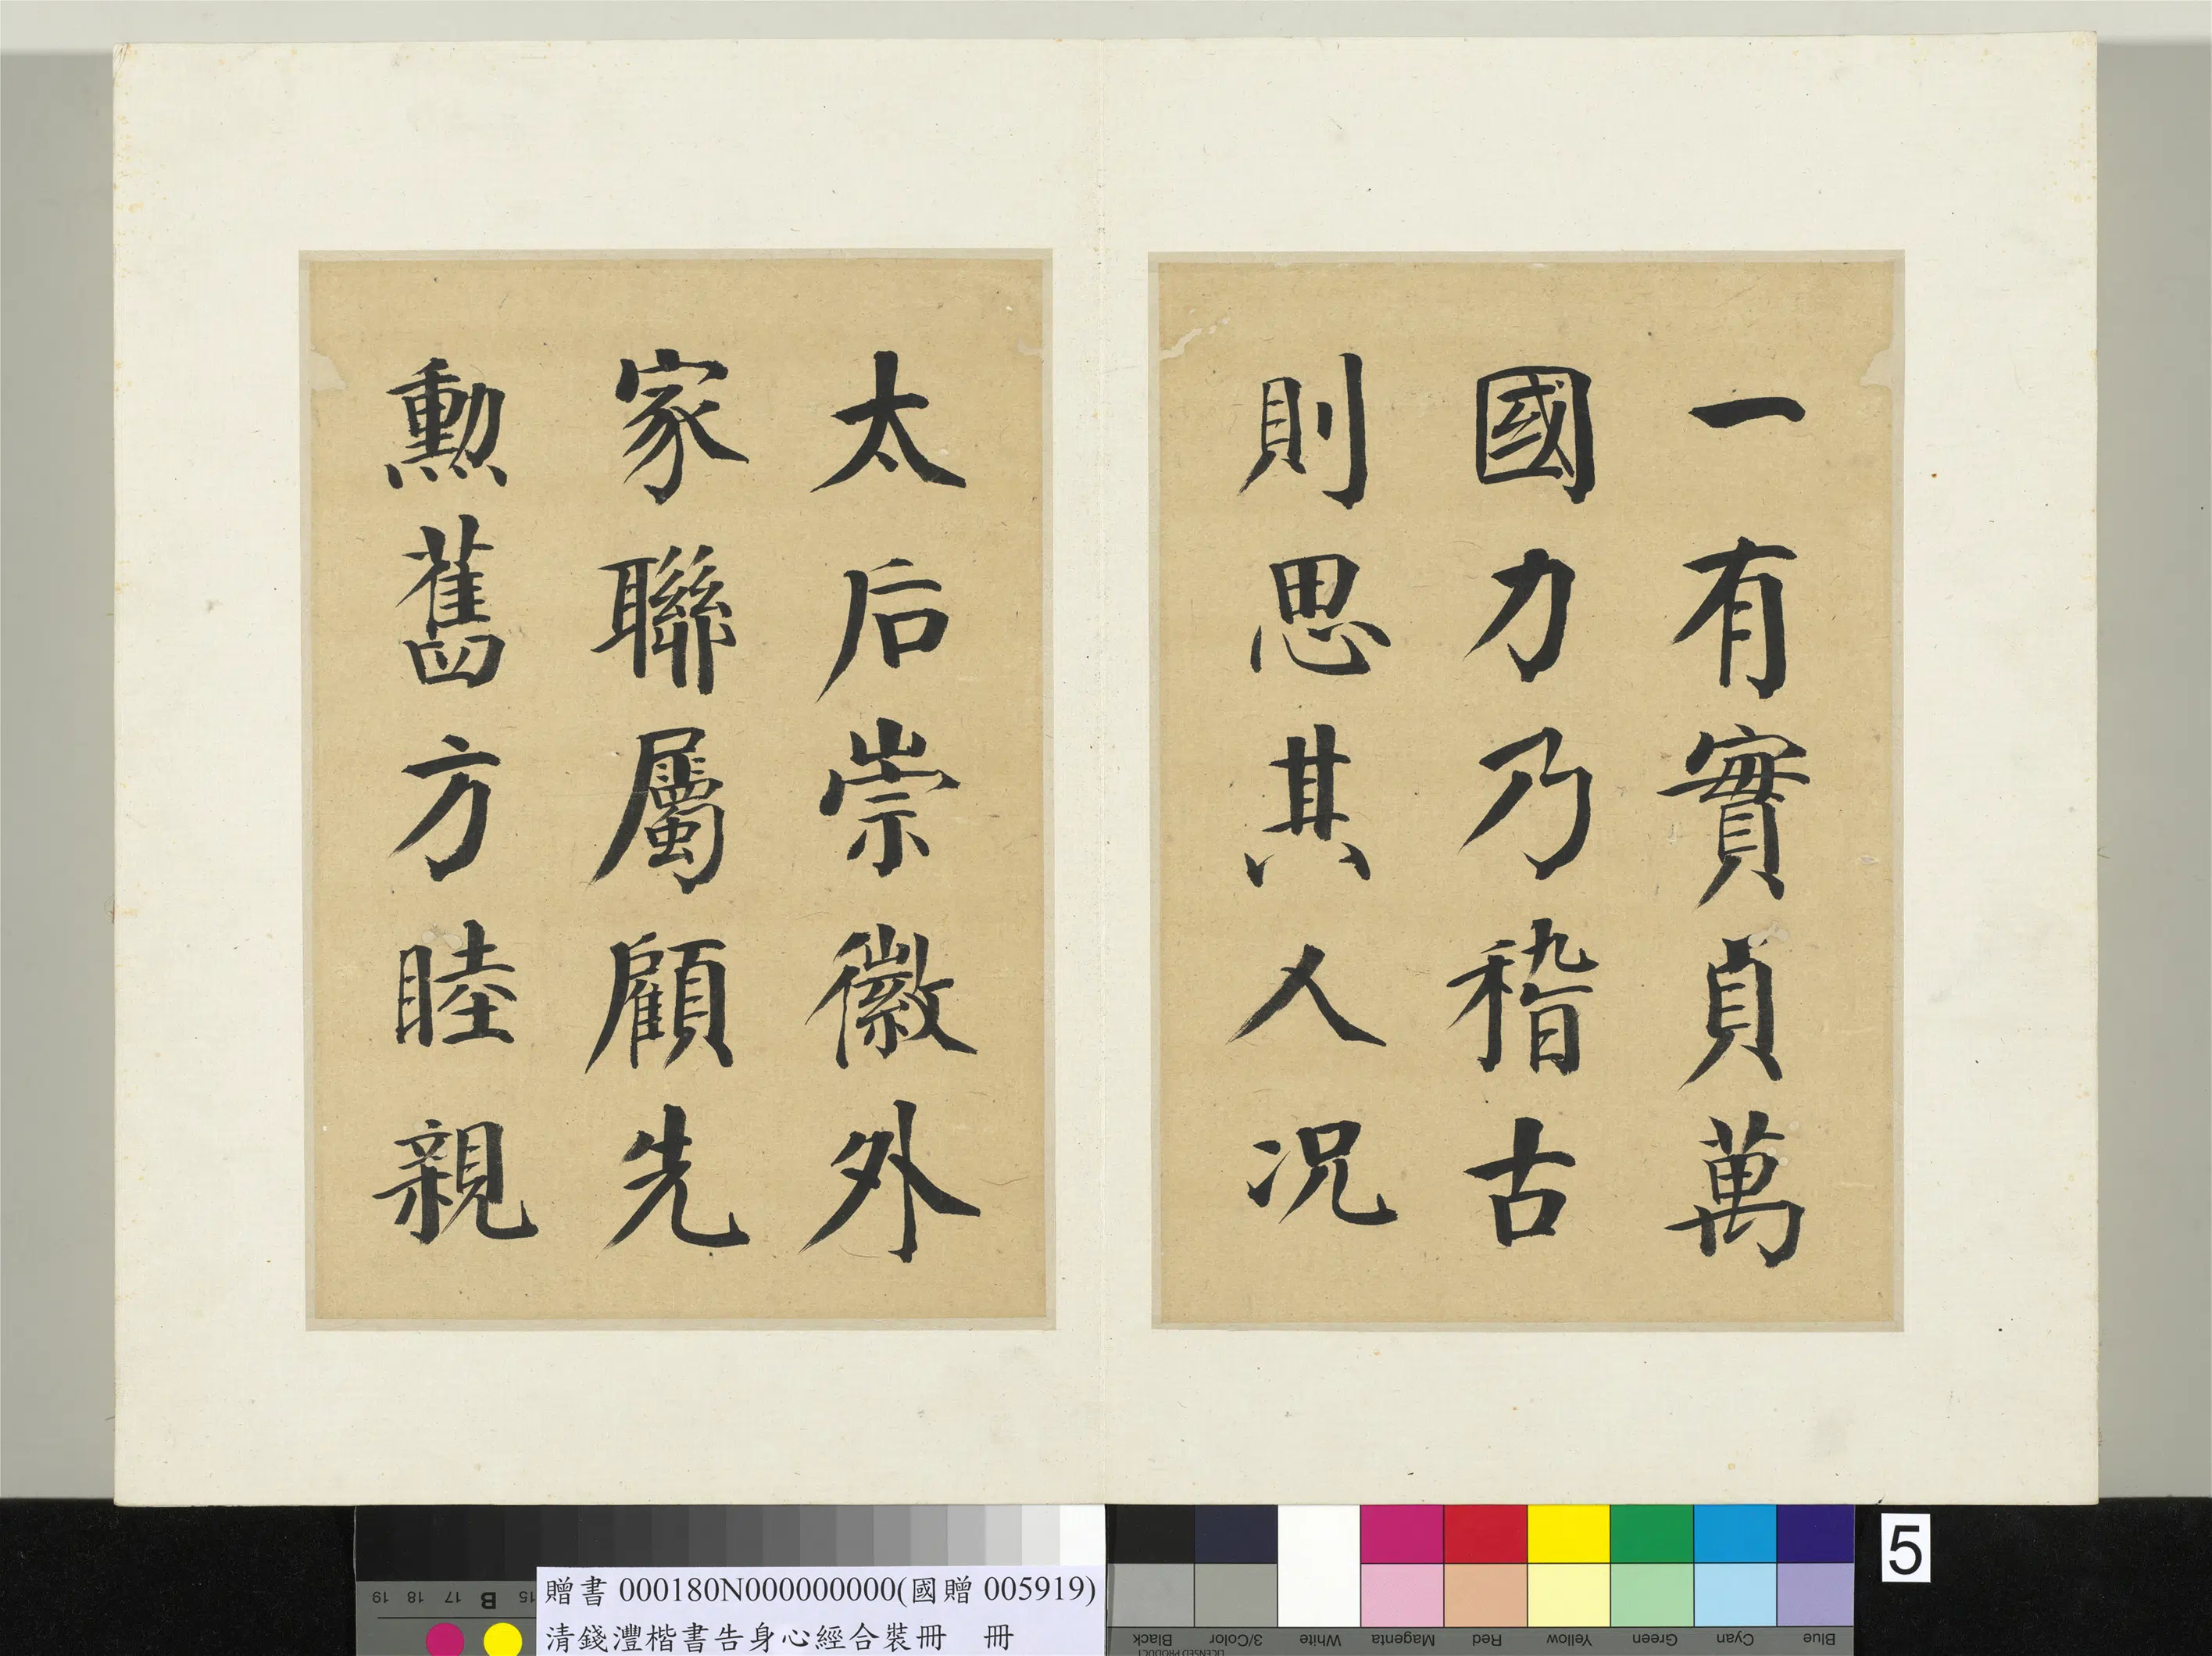 一有實貞萬
國力乃稽古
則思其人况
太后崇徽外
家聯屬顧先
勲舊方睦親
贈書 000180N000000000(國贈 005919)
清錢灃楷書告身心經合裝冊 冊
5
19 18 17 B 15
Black 3/Color White Magenta Red Yellow Green Cyan Blue
LICENSED PRODUCT